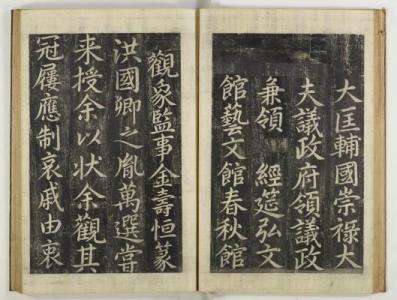 大匡輔國崇祿大
夫議政府領議政
兼領 經筵弘文
館藝文館春秋館
觀象監事金壽恒篆
洪國卿之胤萬選嘗
来授余以状余觀其
冠屨應制哀戚由衷